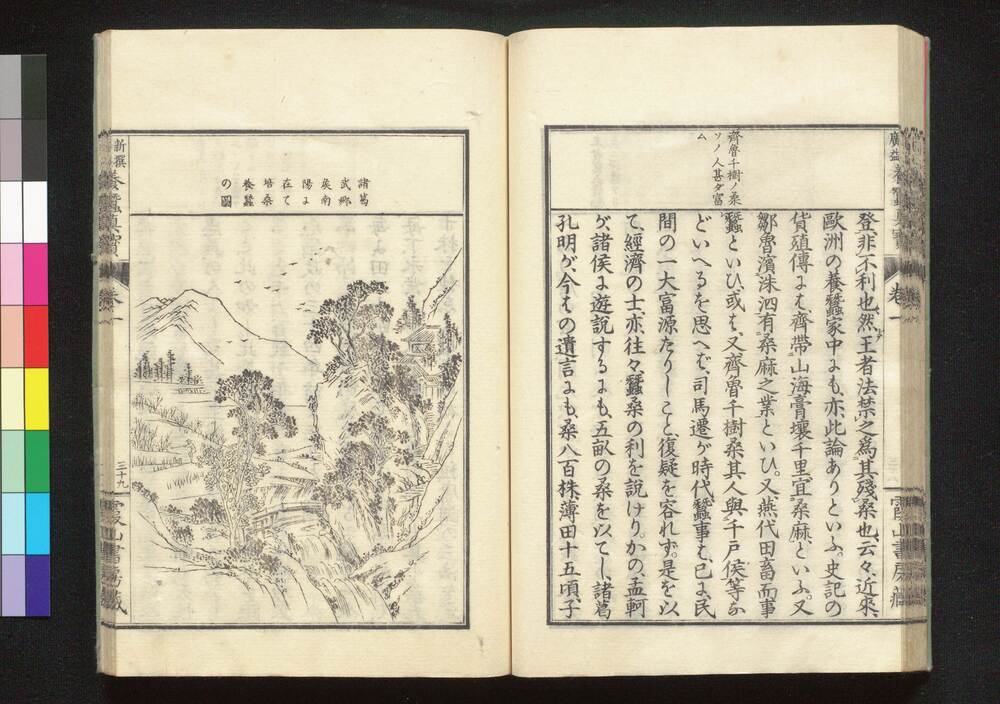 齊魯千樹ノ桑
ソノ人甚ダ富
ム
登、非不利也、然王者法禁之、爲其殘桑也、云々、近來、
歐洲の養蠶家中にも、亦此論ありといふ。史記の
貨殖傳には、齊帶山海膏壤千里宜桑麻、といふ。又
鄒魯濱洙泗有桑麻之業といひ。又燕代田畜而事
蠶といひ、或は、又齊魯千樹桑其人與千戸侯等な
どいへるを思へば、司馬遷が時代蠶事は、已に民
間の一大富源たりしこと、復疑を容れず。是を以
て、經濟の士、亦往々、蠶桑の利を說けり。かの、孟軻
が諸侯に遊說するにも、五畝の桑を以てし、諸葛
孔明が、今はの遺言にも、桑八百株、薄田十五頃、子
廣益
卷一
霞山書房藏
諸葛
武鄕
矦南
陽に
在て
培桑
養蠶
の圖
新撰
養蠶眞寶
卷一
三十九
霞山書房藏